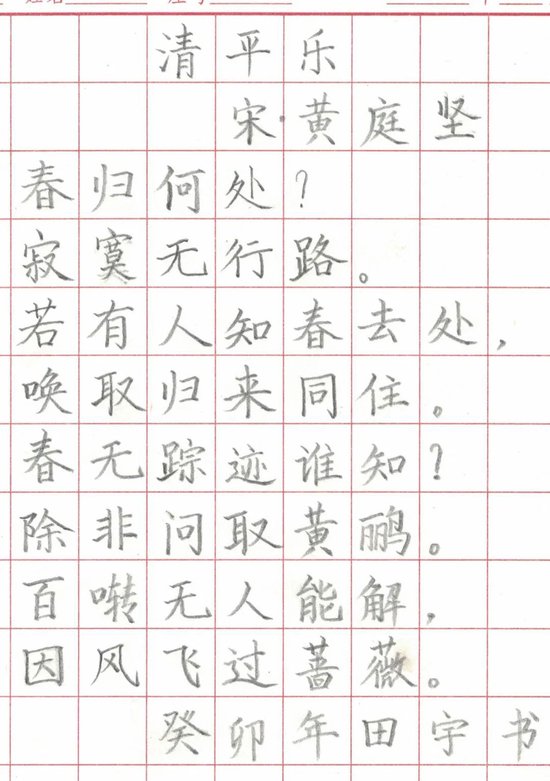 清平乐
宋·黄庭坚
春归何处?
寂寞无行路。
若有人知春去处,
唤取归来同住。
春无踪迹谁知?
除非问取黄鹂。
百啭无人能解,
因风飞过蔷薇。
癸卯年田宇书